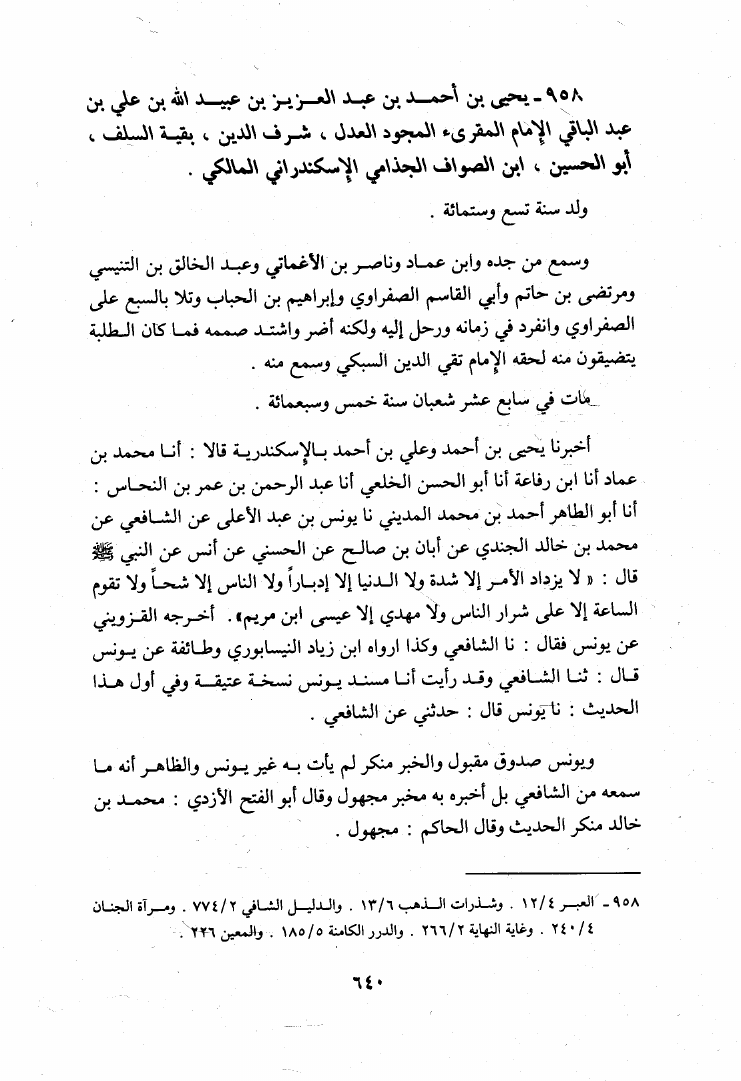 ٩٥٨ - يحيى بن أحمـد بن عبـد العـزيـز بن عبيـد الله بن علي بن
عبد الباقي الإمام المقرىء المجود العدل ، شـرف الدين ، بقيـة السلف ،
أبو الحسين ، ابن الصواف الجذامي الإسكندراني المالكي .
ولد سنة تسع وستمائة .
وسمع من جده وابن عمـاد وناصر بن الأغماتي وعبـد الخالق بن التنيسي
ومرتضى بن حاتم وأبي القاسم الصفراوي وإبراهيم بن الحباب وتلا بالسبع على
الصفراوي وانفرد في زمانه ورحل إليه ولكنه أضر واشتـد صممه فمـا كان الـطلبة
يتضيقون منه لحقه الإمام تقي الدين السبكي وسمع منه .
مات في سابع عشر شعبان سنة خمس وسبعمائة .
أخبرنا يحيى بن أحمد وعلي بن أحمد بـالإسكندريـة قالا : أنـا محمد بن
عماد أنا ابن رفاعة أنا أبو الحسن الخلعي أنا عبد الرحمن بن عمر بن النحـاس :
أنا أبو الطاهر أحمد بن محمد المديني نا يونس بن عبد الأعلى عن الشـافعي عن
محمد بن خالد الجندي عن أبان بن صالـح عن الحسني عن أنس عن النبي ﷺ
قال : « لا يزداد الأمـر إلا شدة ولا الـدنيا إلا إدبـاراً ولا الناس إلا شحـاً ولا تقوم
الساعة إلا على شرار الناس ولا مهدي إلا عيسى ابن مريم» . أخـرجه القـزويني
عن يونس فقال : نا الشافعي وكذا ارواه ابن زياد النيسابوري وطـائفة عن يـونس
قـال : ثنـا الشـافعي وقـد رأيت أنـا مسنـد يـونس نسخـة عتيقـة وفي أول هـذا
الحديث : نا يونس قال : حدثني عن الشافعي .
ويونس صدوق مقبول والخبر منكر لم يأت بـه غير يـونس والظاهـر أنه مـا
سمعه من الشافعي بل أخبره به مخبر مجهول وقال أبو الفتح الأزدي : محمـد بن
خالد منكر الحديث وقال الحاكم : مجهول .
٩٥٨ - العبـر ١٢/٤ . وشـذرات الـذهب ١٣/٦ . والـدليـل الشـافي ٧٧٤/٢ . ومـرآة الجنـان
٢٤٠/٤ . وغاية النهاية ٢٦٦/٢ . والدرر الكامنة ١٨٥/٥ . والمعين ٢٢٦ .
٦٤٠